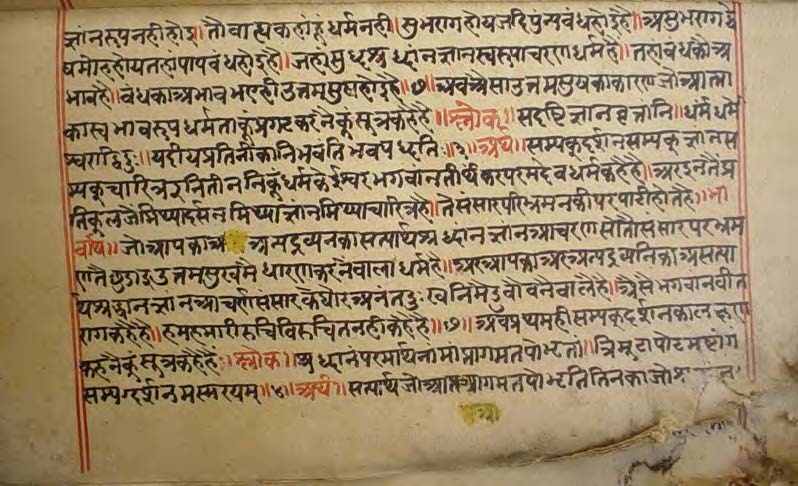 ज्ञांनरूपनहीहोइ॥तौवात्यकहांहूधर्मनही॥सुभरागहोयजदिपुंन्यबंधहोइहै॥असुभरागद्वे
षमोहहोयतहांपापबंधहोइहै॥जहांसुधश्रध्धांनज्ञानस्वरूपाचरणधर्महै॥तहांबंधकाअ
भावहै॥बंधकाअभावभएहीउत्तमसुषहोइहै॥७॥अबअैसाउत्तमसुषकाकारणजोआत्मा
कास्वभावरूपधर्मताकूंप्रगटकरनैकूंसूत्रकहैहै॥श्लोक॥सदृष्टिज्ञानवृत्तानि॥धर्मंधर्मे
श्वराविदुः॥यदीयप्रतिनीकानिभवंतिभवपध्धतिः॥३॥अर्थ॥सम्यक्दर्शनसम्यक्ज्ञांनस
म्यक्चारित्रइनितीननिकूंधर्मकेईश्वरभगवानतीर्थंकरपरमदेवधर्मकहैहै॥अरइनतैंप्र
तिकूलजेमिथ्यादर्सनमिथ्याज्ञांनमिथ्याचारित्रहै॥तेसंसारपरिभ्रमनकीपरपाटीहोतहै॥भा
वार्थ॥जोआपकाअ अन्यद्रव्यनकासत्यार्थश्रध्धानज्ञानआचरणसोतौसंसारपरभ्रम
णतैछुडाइउत्तमसुखमैधारणकरनैवालाधर्महै॥अरआपकाअरअन्यद्रव्यनिकाअसत्या
र्थश्रद्धानज्ञानआचर्णसंसारकेघोरअनंतदुःखनिमेडुबोवनेवालेहै॥अैसैभगवानवीत
रागकहैहै॥हमहमारीरुचिविरुचितनहीकहैहै॥७॥अबप्रथमहीसम्यक्दर्शनकालक्षण
कहनैकूंसूत्रकहैहै॥श्लोक॥श्रध्धानंपरमार्थनामांप्तागमतपोभृतां॥त्रिमूढापोढमष्टांग
सम्यग्दर्शनमस्मयम्॥४॥अर्थ॥सत्यार्थजोआप्तआगमतपोभृतितिनकाजो